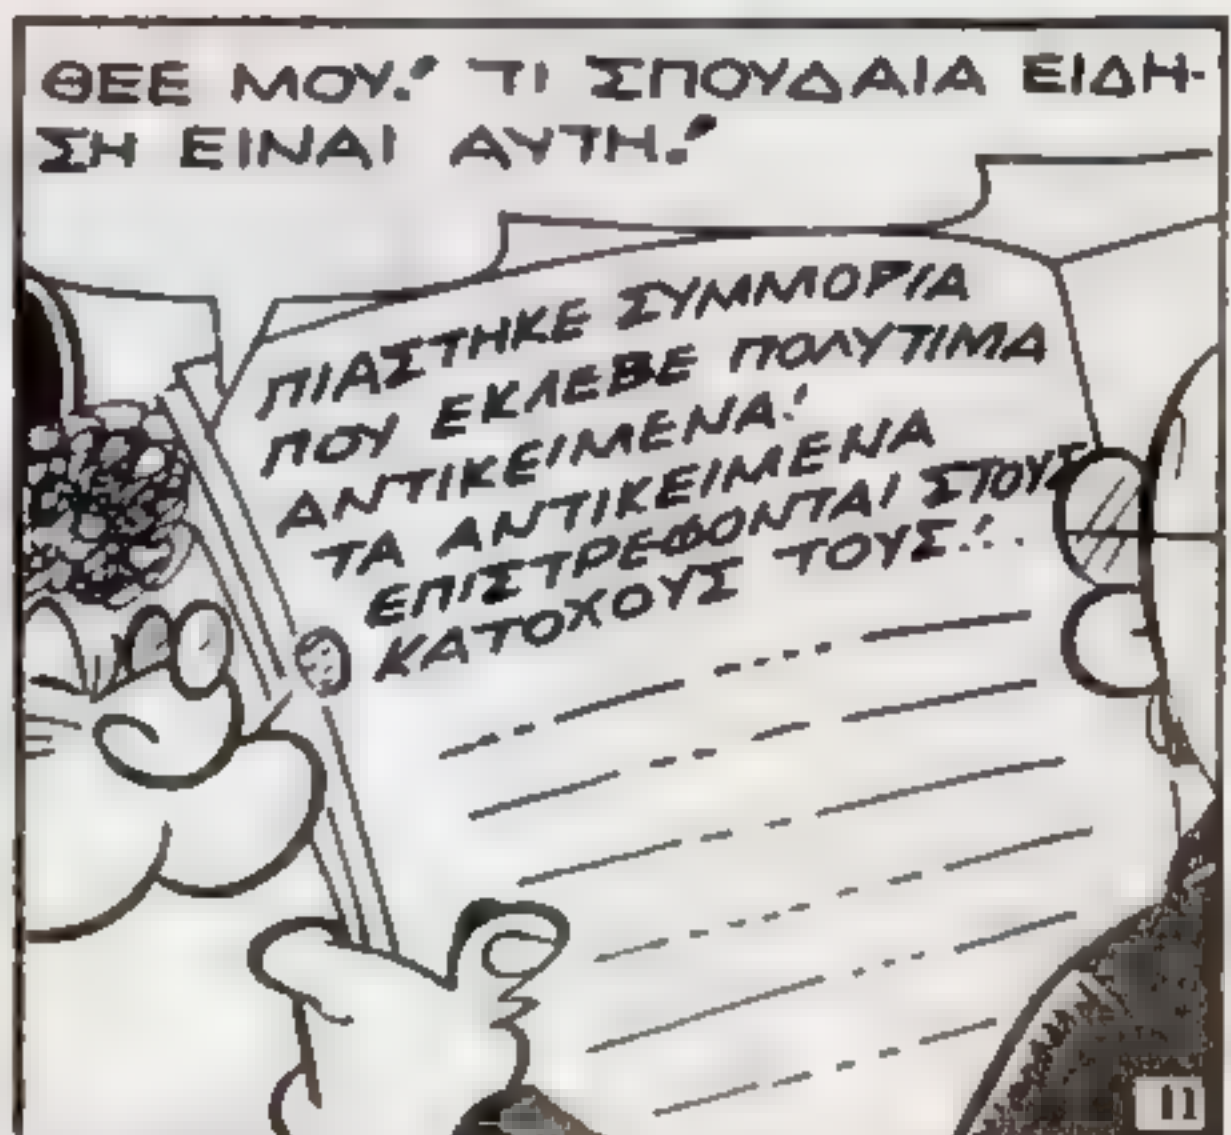 ΘΕΕ ΜΟΥ! ΤΙ ΣΠΟΥΔΑΙΑ ΕΙΔΗ-
ΣΗ ΕΙΝΑΙ ΑΥΤΗ!
ΠΙΑΣΤΗΚΕ ΣΥΜΜΟΡΙΑ
ΠΟΥ ΕΚΛΕΒΕ ΠΟΛΥΤΙΜΑ
ΑΝΤΙΚΕΙΜΕΝΑ!
ΤΑ ΑΝΤΙΚΕΙΜΕΝΑ
ΕΠΙΣΤΡΕΦΟΝΤΑΙ ΣΤΟΥΣ
ΚΑΤΟΧΟΥΣ ΤΟΥΣ!..
11